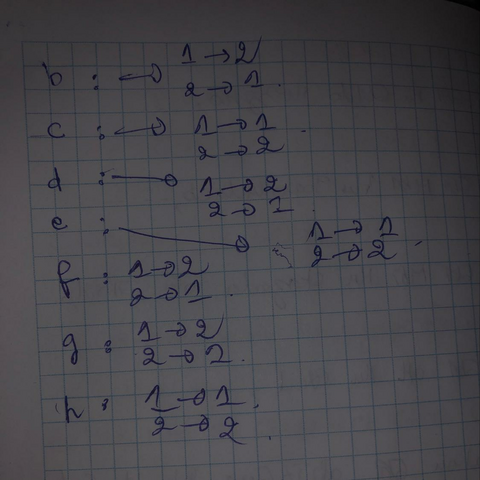 b : → 1 → 2
2 → 1.
c : → 1 → 1.
2 → 2
d : → 1 → 2
2 → 1.
e : → 1 → 1
2 → 2.
f : 1 → 2
2 → 1.
g : 1 → 2
2 → 1.
h : 1 → 1.
2 → 2.